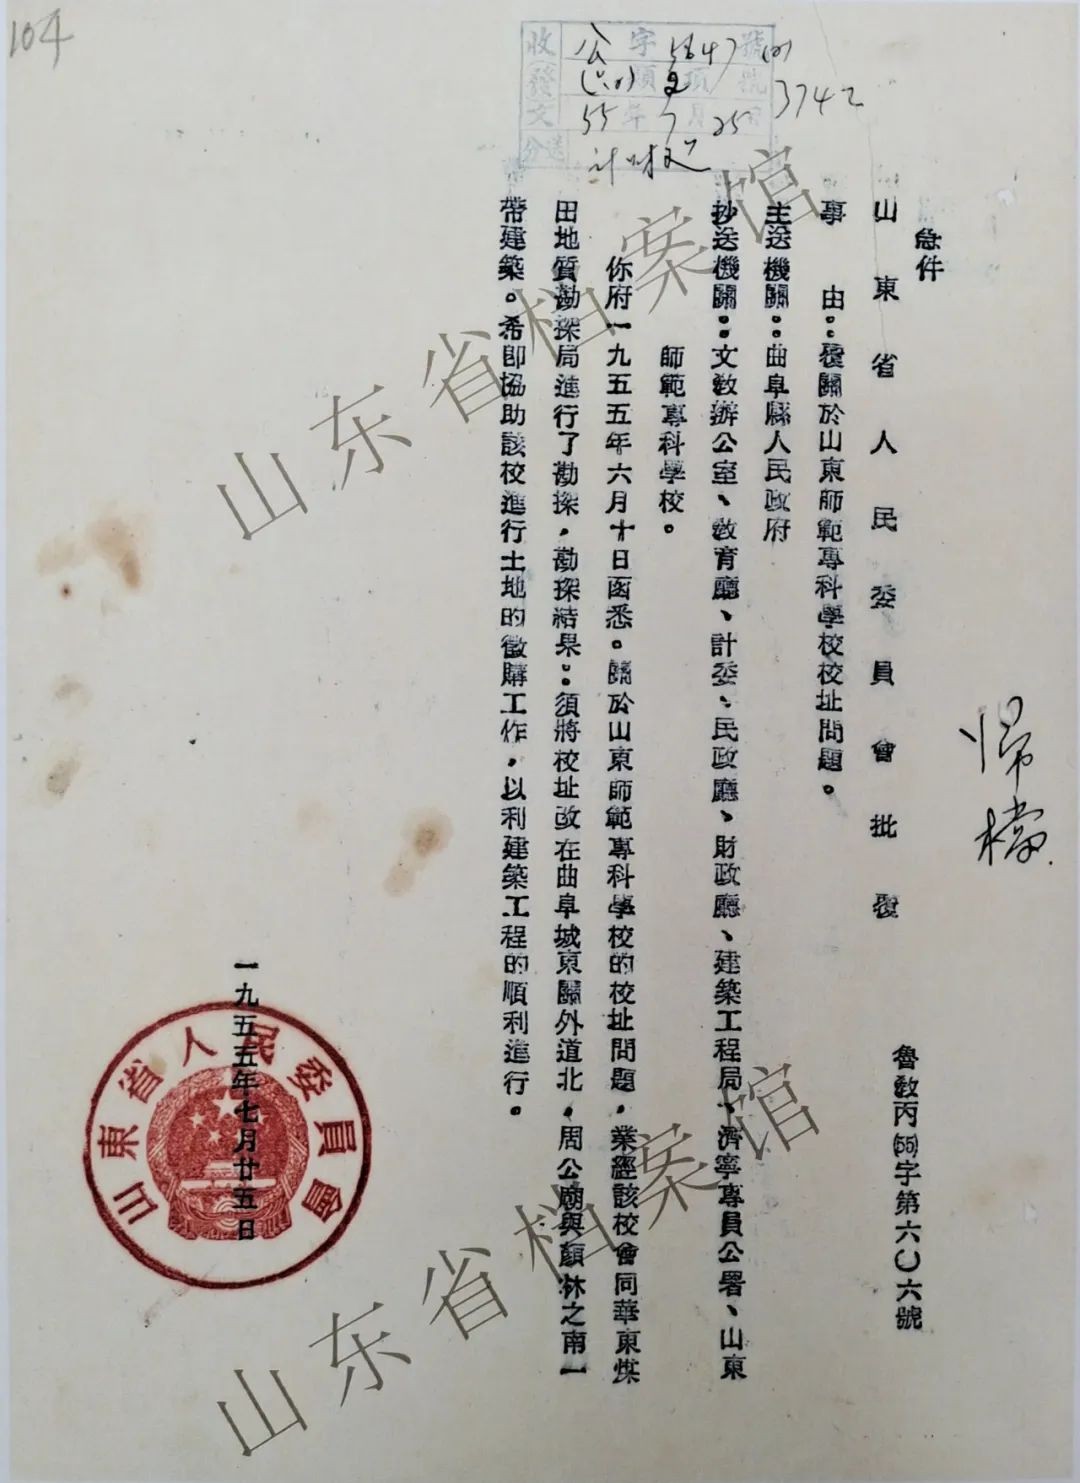 104
收發文
字 號
公 5847
順 項 號
3742
55年7月25日
分送
急件
山東省人民委員會批覆
魯教丙(55)字第六〇六號
歸檔
事　由：覆關於山東師範專科學校校址問題。
主送機關：曲阜縣人民政府
抄送機關：文教辦公室、教育廳、計委、民政廳、財政廳、建築工程局、濟寧專員公署、山東
師範專科學校。
你府一九五五年六月十日函悉。關於山東師範專科學校的校址問題，業經該校會同華東煤
田地質勘探局進行了勘探，勘探結果：須將校址改在曲阜城東關外道北，周公廟與顏林之南一
帶建築。希即協助該校進行土地的徵購工作，以利建築工程的順利進行。
一九五五年七月廿五日
山東省人民委員會
山东省档案馆
山东省档案馆